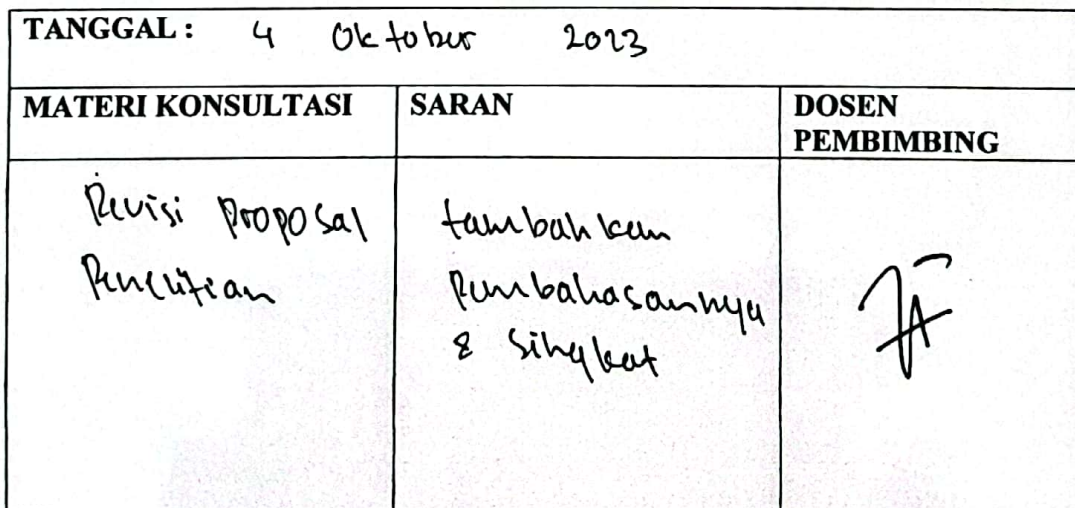 TANGGAL : 4 Oktober 2023
MATERI KONSULTASI SARAN DOSEN
PEMBIMBING
Revisi Proposal
Penelitian
tambahkan
Pembahasannya
& Singkat